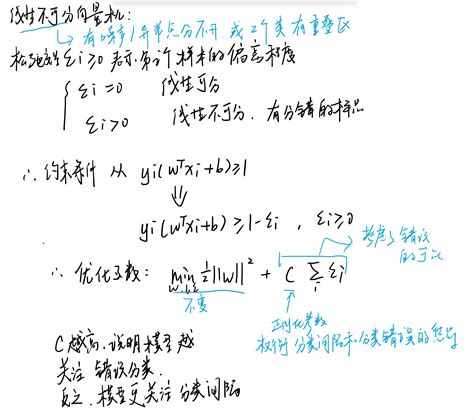 线性不可分向量机:
↳ 有噪声/异常点分不开,或2个类有重叠区
松弛变量 ξi≥0 表示第i个样本的偏离程度
{ ξi=0 线性可分
ξi>0 线性不可分,有分错的样本
∴ 约束条件 从 yi(wᵀxi+b)≥1
⇓
yi(wᵀxi+b)≥1-ξi , ξi≥0
考虑了错误的可能
∴ 优化函数: min w,b,ξ ½||w||² + C Σi ξi
不变
正则化参数
权衡 分类间隔和分类错误的
C越高,说明模型越
关注 错误分类.
反之,模型更关注分类间隔